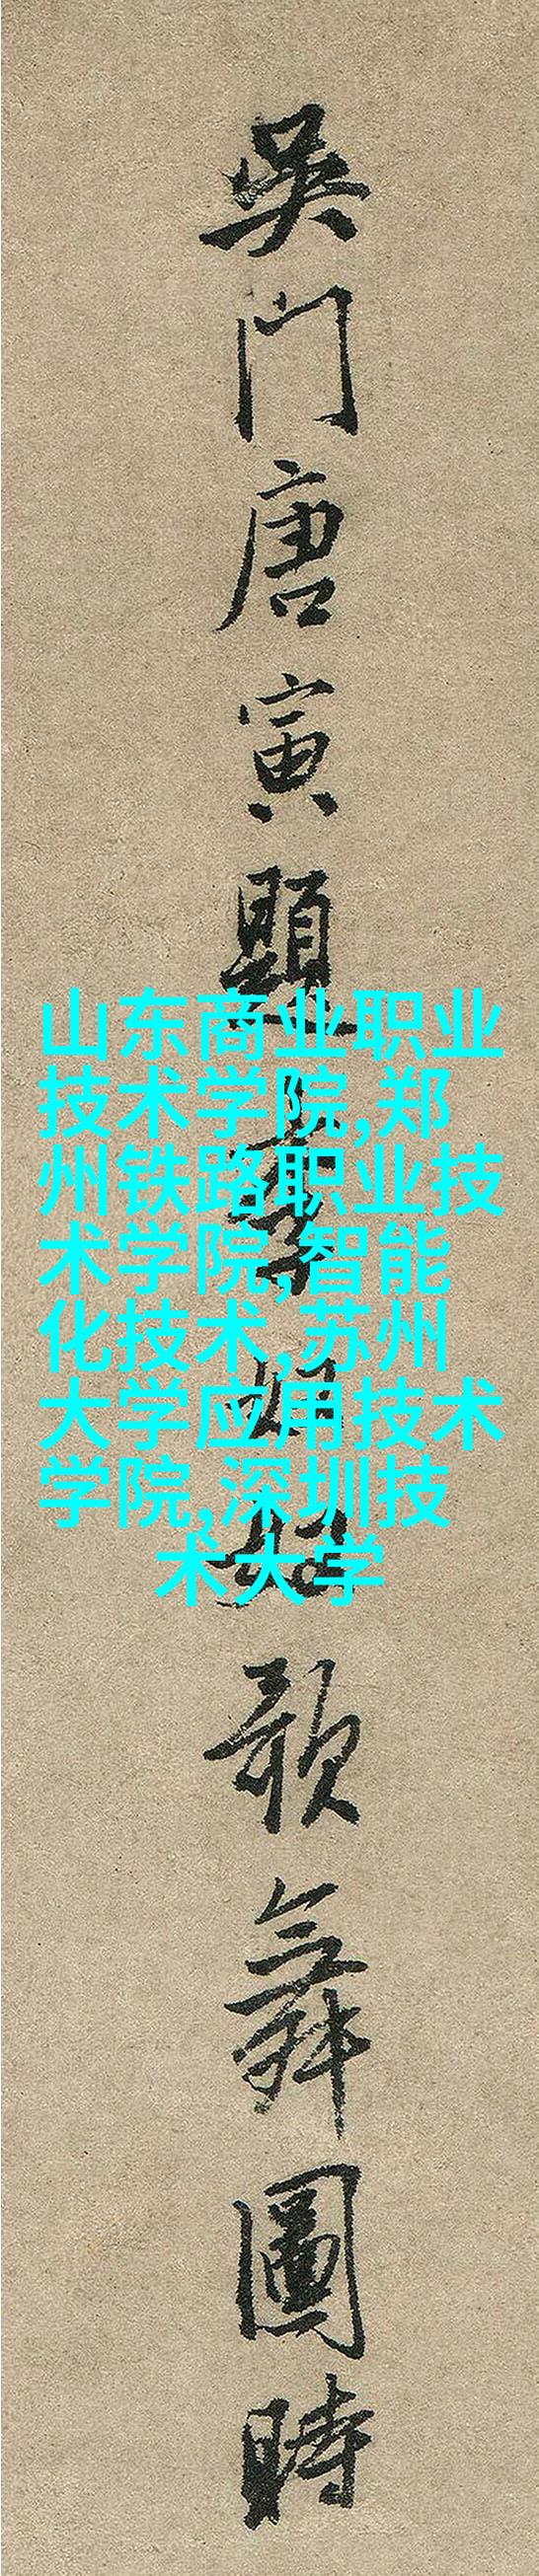 吳門唐寅題李歌舞圖時
山东商业职业
技术学院,郑
州铁路职业技
术学院,智能
化技术,苏州
大学应用技术
学院,深圳技
术大学